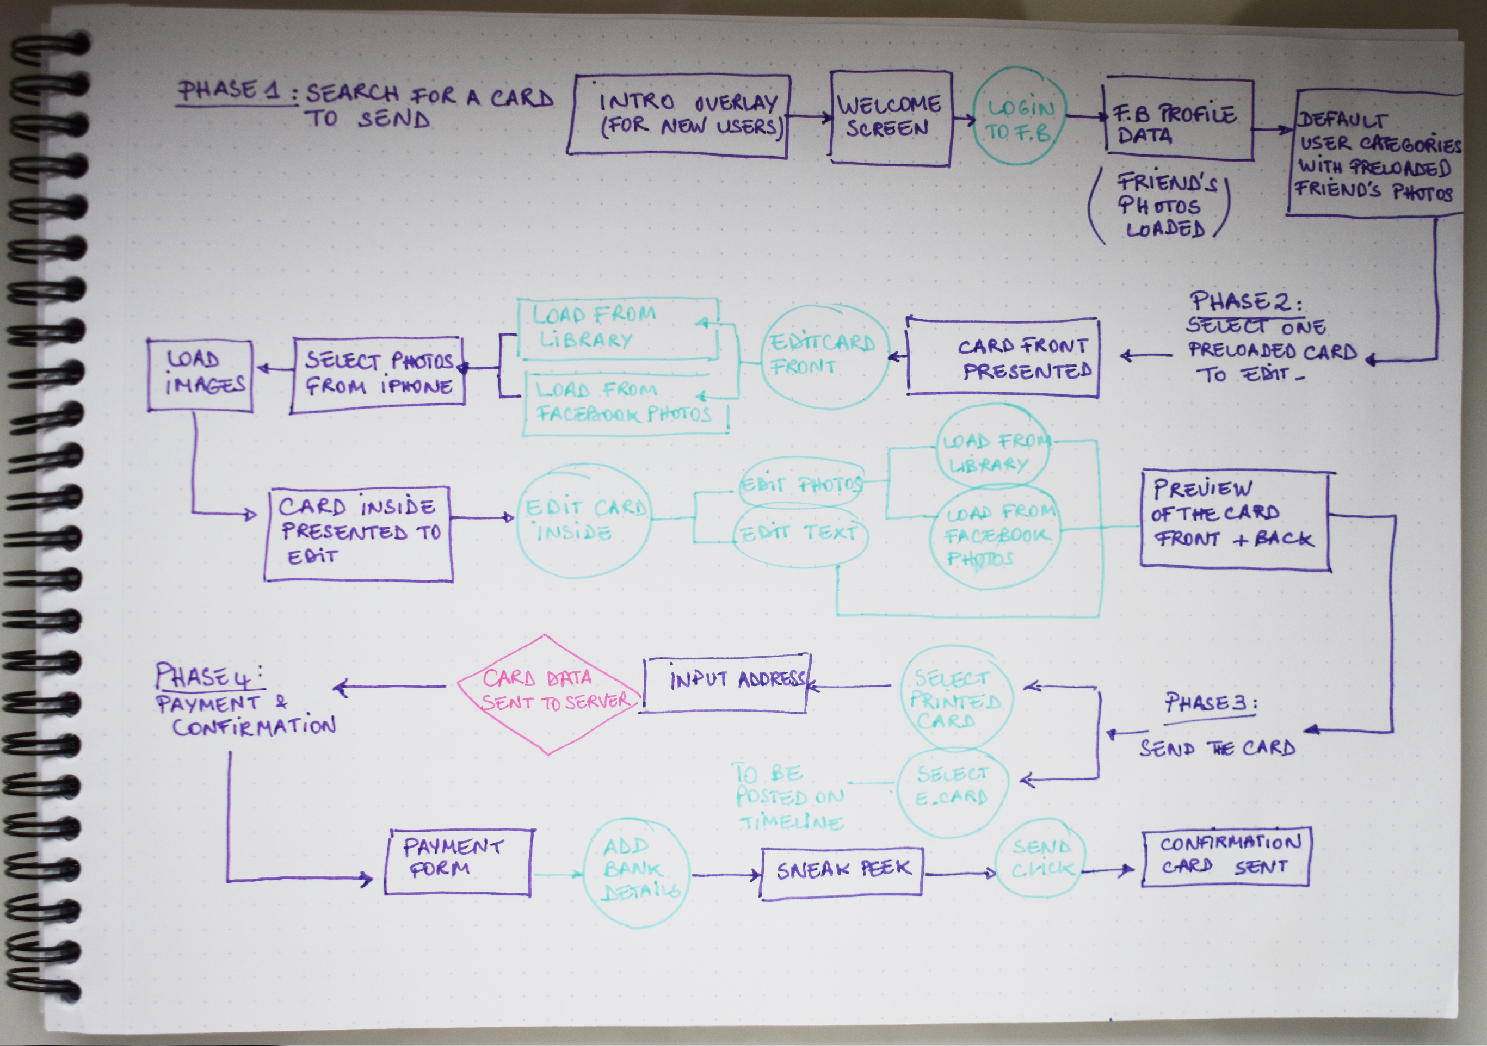 PHASE 1: SEARCH FOR A CARD
TO SEND
INTRO OVERLAY
(FOR NEW USERS)
WELCOME
SCREEN
LOGIN
TO F.B
F.B PROFILE
DATA
(FRIEND'S
PHOTOS
LOADED)
DEFAULT
USER CATEGORIES
WITH PRELOADED
FRIEND'S PHOTOS
PHASE 2:
SELECT ONE
PRELOADED CARD
TO EDIT_
CARD FRONT
PRESENTED
EDIT CARD
FRONT
LOAD FROM
LIBRARY
LOAD FROM
FACEBOOK PHOTOS
SELECT PHOTOS
FROM IPHONE
LOAD
IMAGES
CARD INSIDE
PRESENTED TO
EDIT
EDIT CARD
INSIDE
EDIT PHOTOS
EDIT TEXT
LOAD FROM
LIBRARY
LOAD FROM
FACEBOOK
PHOTOS
PREVIEW
OF THE CARD
FRONT + BACK
PHASE 3:
SEND THE CARD
SELECT
PRINTED
CARD
SELECT
E.CARD
TO BE
POSTED ON
TIMELINE
INPUT ADDRESS
CARD DATA
SENT TO SERVER
PHASE 4:
PAYMENT &
CONFIRMATION
PAYMENT
FORM
ADD
BANK
DETAILS
SNEAK PEEK
SEND
CLICK
CONFIRMATION
CARD SENT